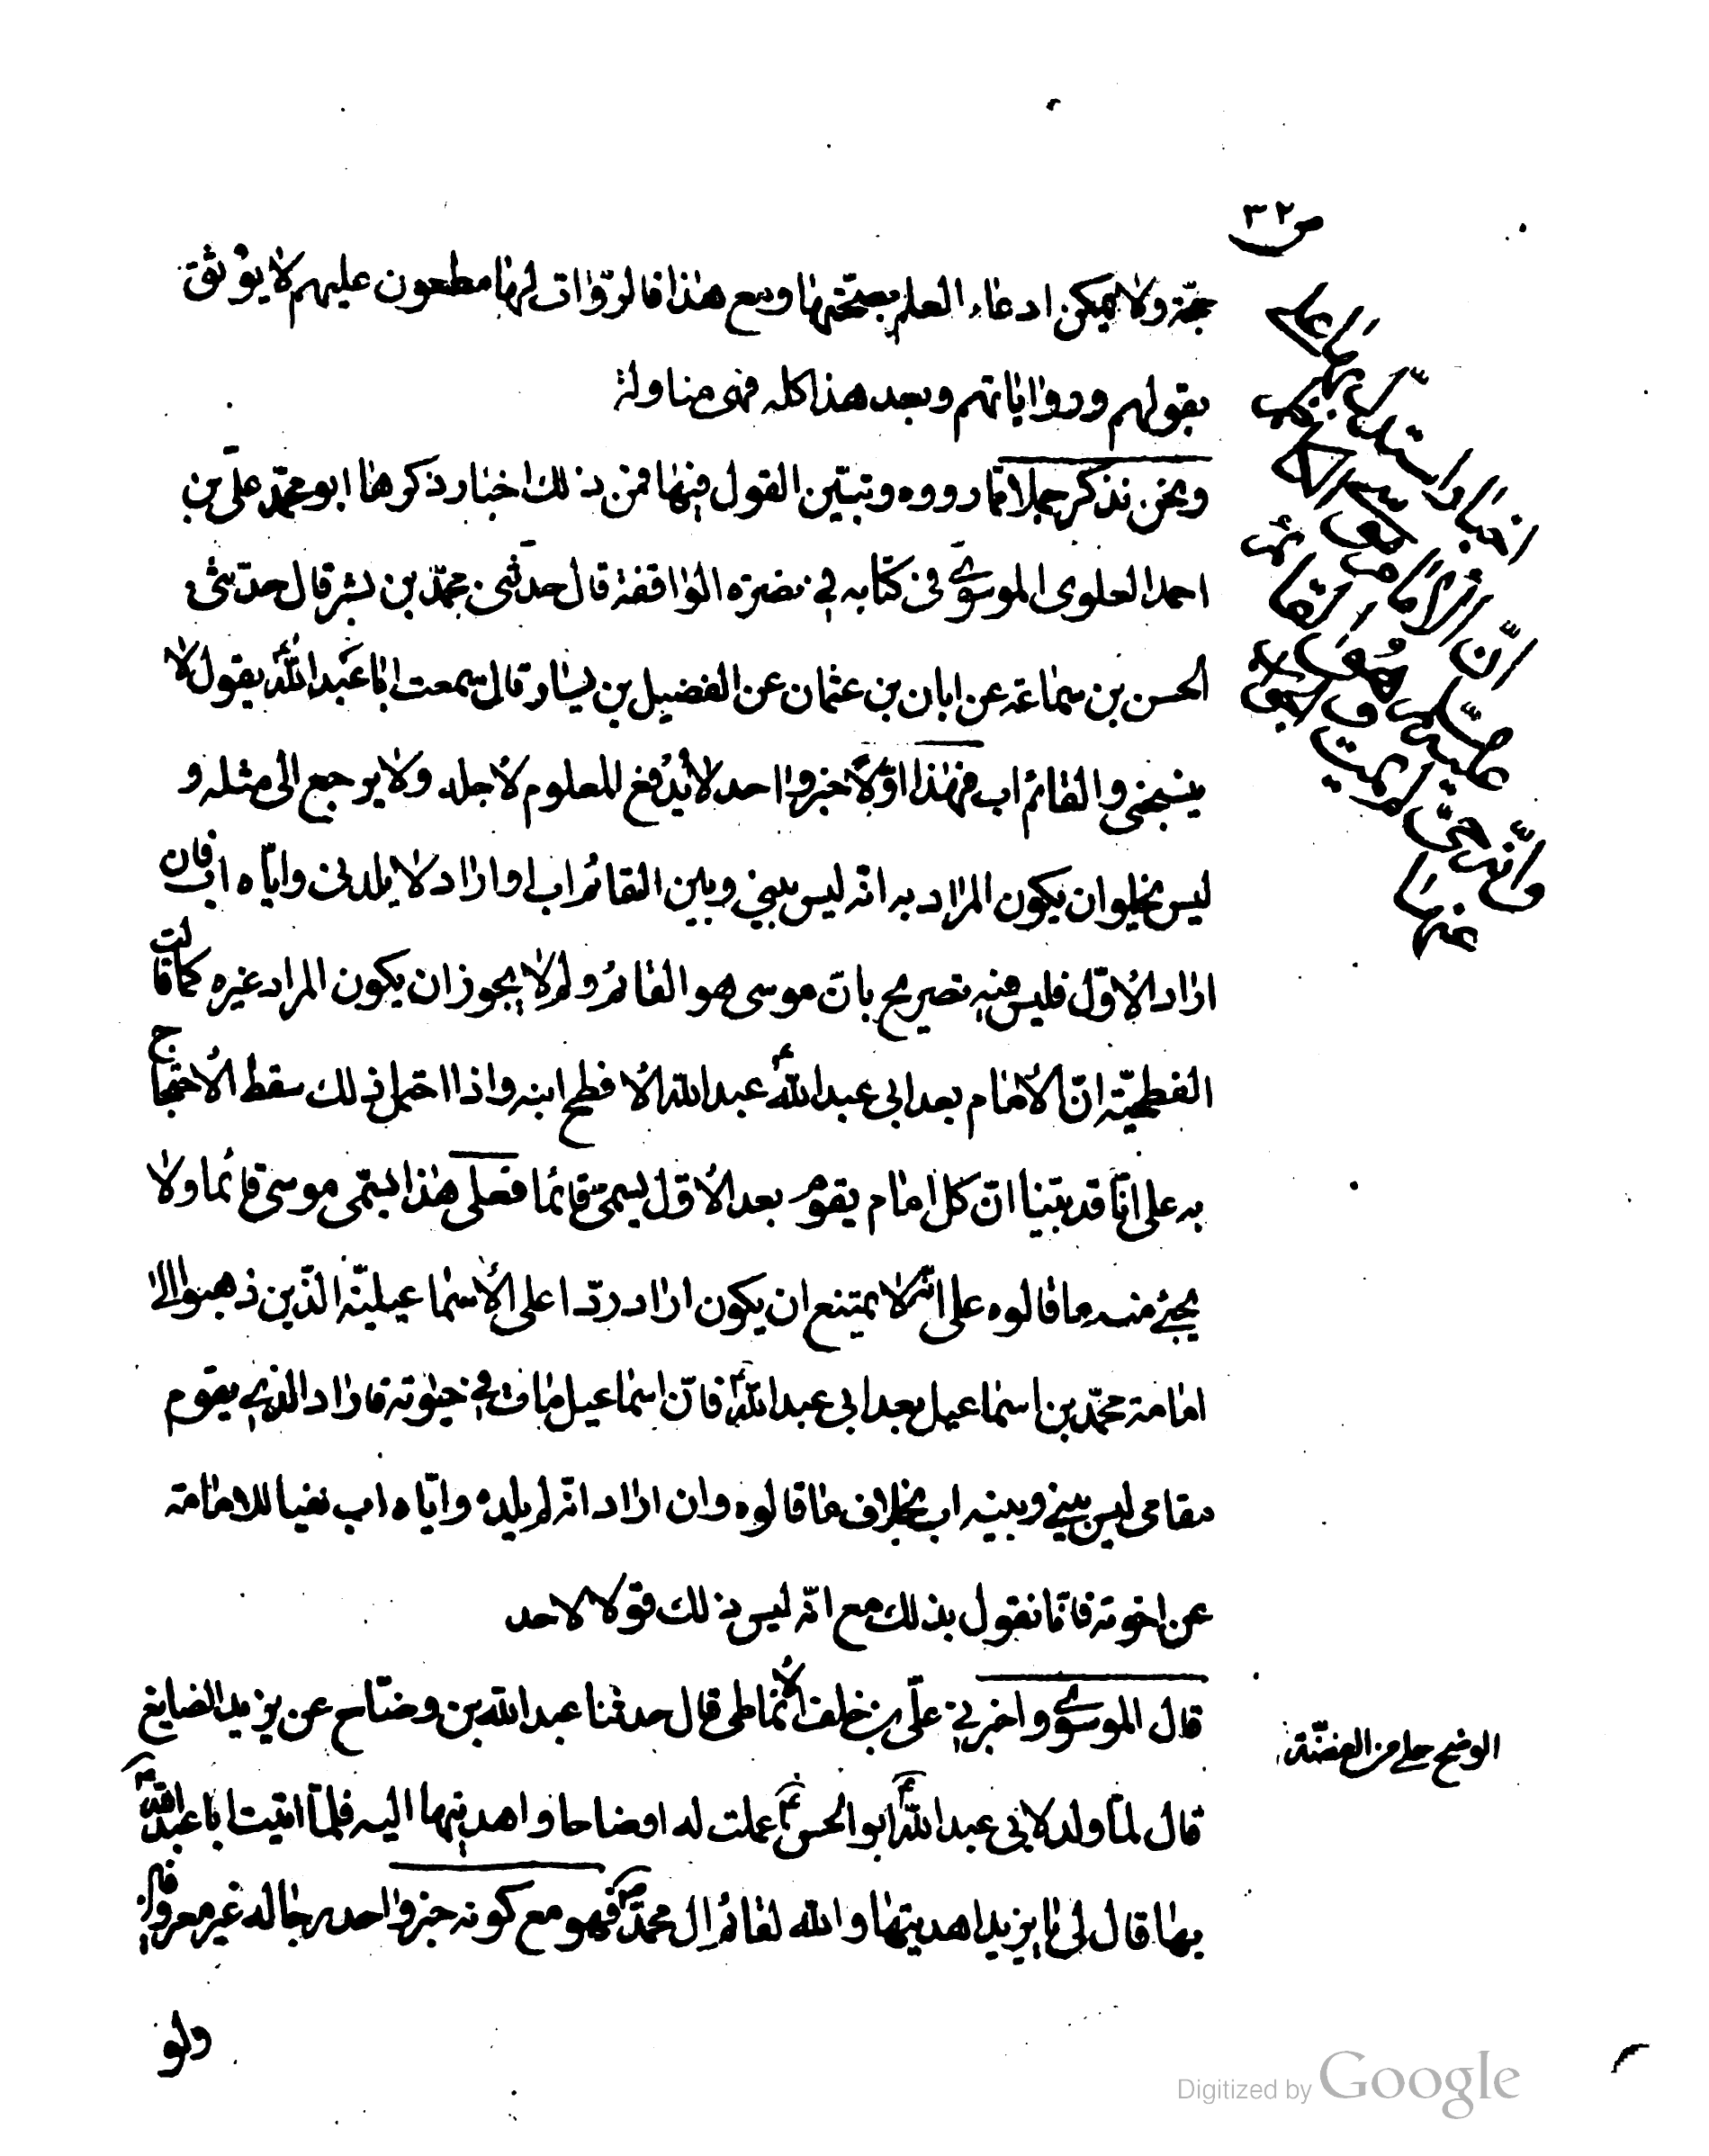 ص ٣٢
حجّة ولا يمكن ادعاء العلم بصحّتها ومع هذا فالروّات لها مطعون عليهم لا يوثق
بقولهم ورواياتهم وبعد هذا كله فهى متاولة
ونحن نذكر جملا مما رووه ونبيّن القول فيها فمن ذلك اخبار ذكرها ابو محمّد علىّ بن
احمد العلوى الموسوي فى كتابه في نصرة الواقفة قال حدثنى محمّد بن بشر قال حدّثنى
الحسن بن سماعة عن ابان بن عثمان عن الفضيل بن يسار قال سمعت ابا عبد اللهؑ يقول لا
ينسجنى والقائم اب فهذا اوّلاً خبر واحد لا يُدفع المعلوم لاجله ولا يرجع الى مثله و
ليس يخلو ان يكون المراد به انّه ليس بينى وبين القائم اب او اراد لا يلدنى وايّاه اب فان
اراد الاوّل فليس فيه تصريح بانّ موسى هو القائم ولم لا يجوز ان يكون المراد غيره كما قالت
الفطحيّة انّ الامام بعد ابى عبد اللهؑ عبد الله الافطح ابنه واذا احتمل ذلك سقط الاحتجاج
به على انّا قد بيّنا انّ كل امام يقوم بعد الاوّل يسمى قائما فعلى هذا يسمّى موسى قائما ولا
يجئ منه ما قالوه على انّه لا يمتنع ان يكون اراد ردّا على الاسماعيليّة الذّين ذهبوا الى
امامة محمّد بن اسماعيل بعد ابى عبد اللهؑ فانّ اسماعيل مات في حيوته فاراد الذي يقوم
مقامى ليس بينى وبينه اب بخلاف ما قالوه وان اراد انّه لم يلده وايّاه اب نفيا للامامة
عن اخوته فانّا نقول بذلك مع انّه ليس ذلك قولا لاحد
قال الموسوي واخبرني علىّ بن خلف الانماطى قال حدثنا عبد الله بن وضاح عن يزيد الصايغ
قال لمّا ولد لابى عبد اللهؑ ابو الحسنؑ عملت له اوضاحا واهديتها اليه فلمّا اتيت ابا عبد اللهؑ
بها قال لى يا يزيد اهديتها والله لقائم ال محمّدؐ فهو مع كونه خبر واحد رجاله غير معروفين
ولو
الوضح حلى من الفضّة